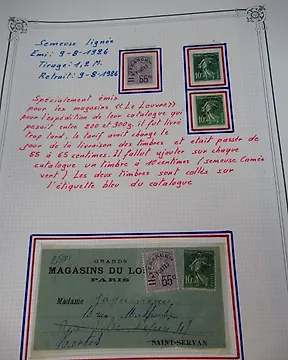 Semeuse lignée
Emis: 9-8-1926
Tirage: 1,2 M.
Retrait: 9-8-1926
Spécialement émis
pour les magasins «Le Louvre»
pour l'expédition de leur catalogue qui
pesait entre 200 et 300g. Il fut livré
trop tard, le tarif avait changé le
jour de la livraison des timbres et était passer de
55 à 65 centimes. Il fallut ajouter sur chaque
catalogue un timbre à 10 centimes (semeuse Camée
vert). Les deux timbres sont collés sur
l'étiquette bleu du catalogue
GRANDS
MAGASINS DU LO
PARIS
Madame
SAINT-SERVAN